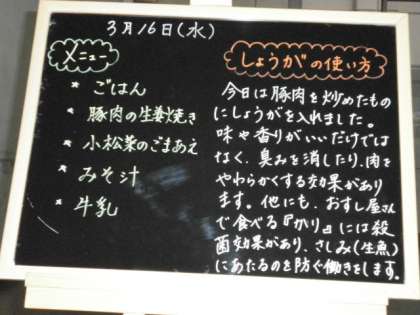 3月16日(水)
メニュー
* ごはん
* 豚肉の生姜焼き
* 小松菜のごまあえ
* みそ汁
* 牛乳
しょうがの使い方
今日は豚肉を炒めたもの
にしょうがを入れました。
味や香りがいいだけでは
なく、臭みを消したり、肉を
やわらかくする効果があり
ます。他にも、おすし屋さん
で食べる『かり』には殺
菌効果があり、さしみ(生魚)
にあたるのを防ぐ働きをします。